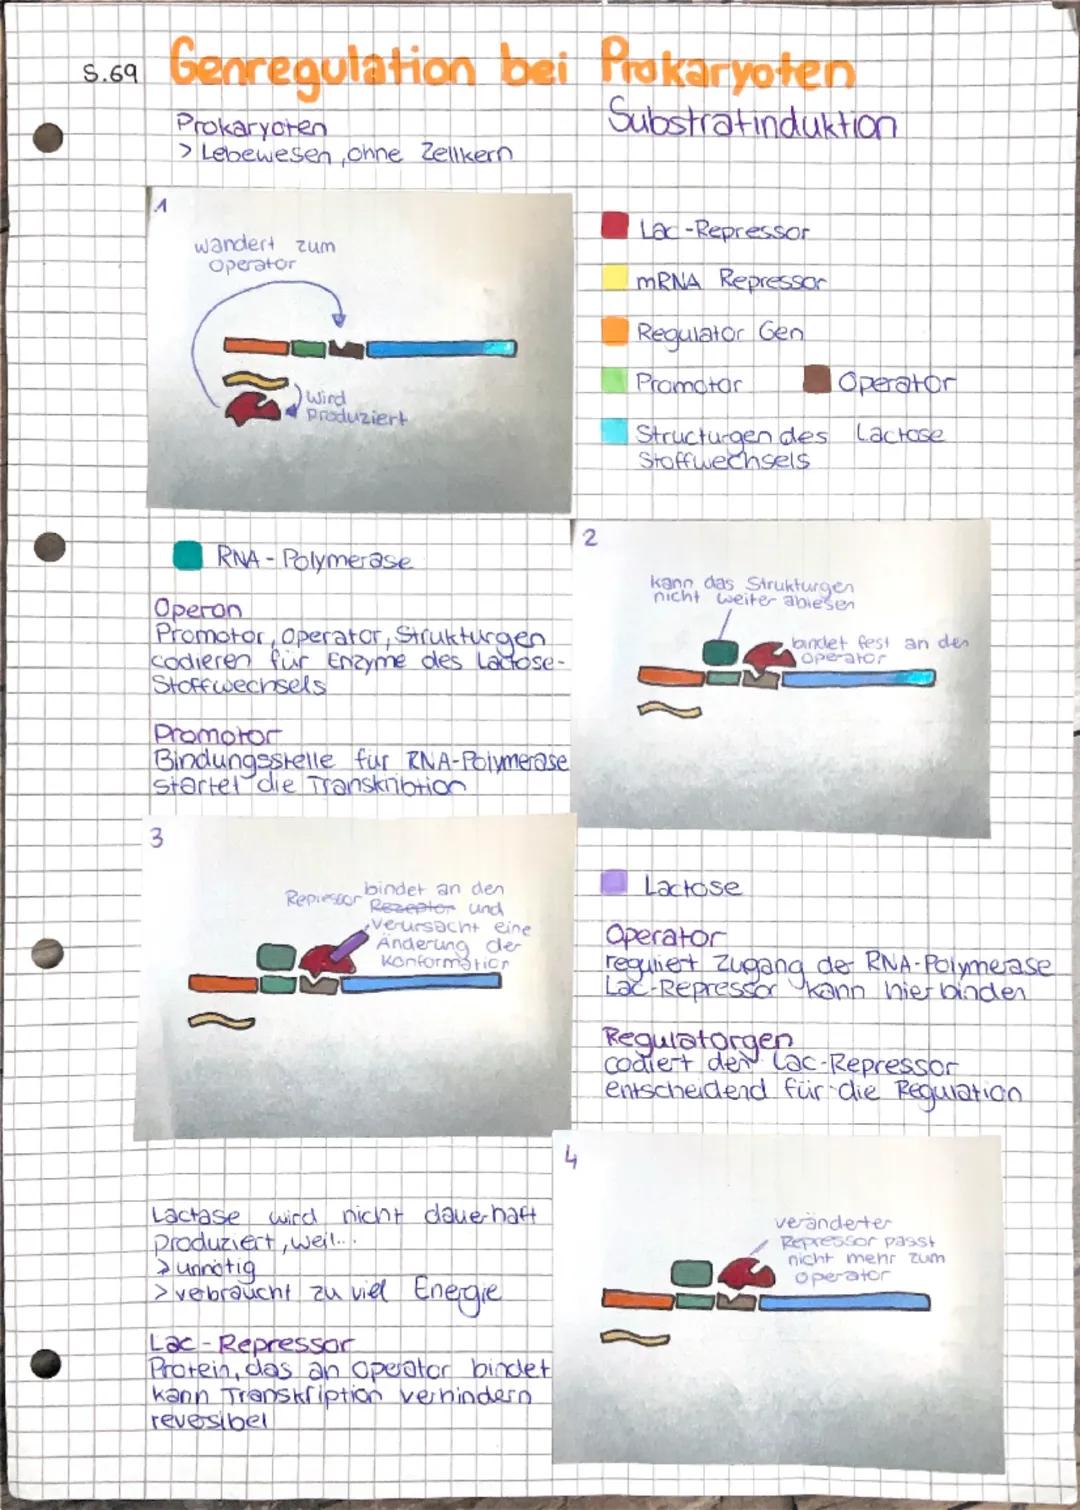 S.69 Genregulation bei Prokaryoten
Substratinduktion
Prokaryoten
> Lebewesen, ohne Zellkern
1
wandert zum
Operator
wird
produziert
Lac-Repressor
mRNA Repressor
Regulator Gen
Promotor
Operator
Structurgen des Lactose
Stoffwechsels
RNA-Polymerase
Operon
Promotor, Operator, Strukturgen
codieren für Enzyme des Lactose-
Stoffwechsels
Promotor
Bindungsstelle für RNA-Polymerase
startet die Transkribtion
2
kann das Strukturgen
nicht weiter ablesen
bindet fest an den
Operator
3
bindet an den
Repressor Rezeptor und
verursacht eine
Änderung der
Konformation
Lactose
Operator
reguliert Zugang der RNA-Polymerase
Lac-Repressor kann hier binden
Regulatorgen
codiert den Lac-Repressor
entscheidend für die Regulation
Lactase wird nicht dauerhaft
produziert, weil...
> unnötig
> verbraucht zu viel Energie
Lac-Repressor
Protein, das an Operator bindet
kann Transkription verhindern
reversibel
4
veränderter
Repressor passt
nicht mehr zum
Operator